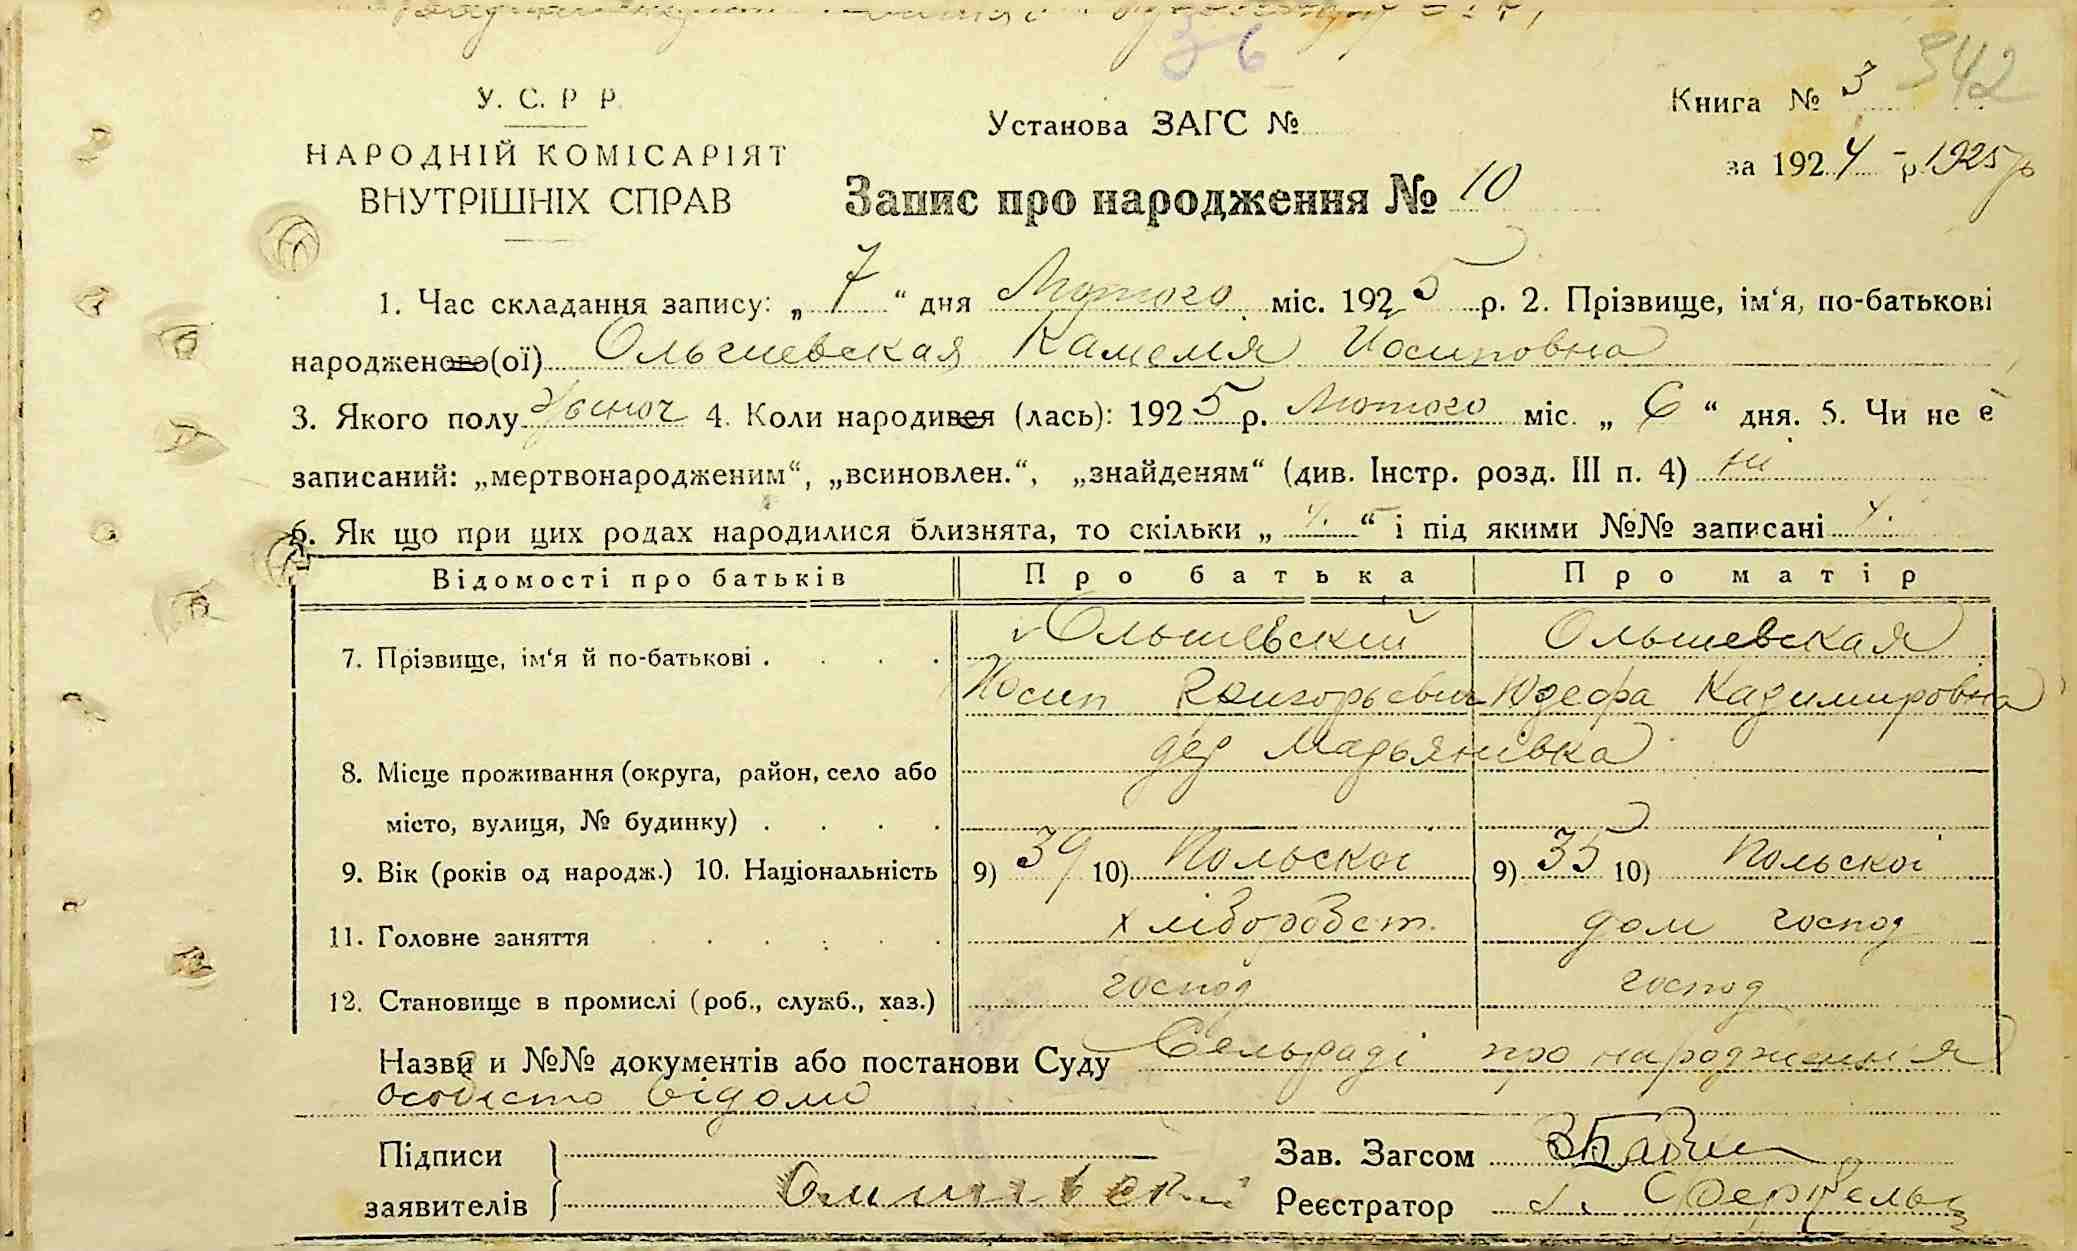 36
542
У. С. Р Р.
НАРОДНІЙ КОМІСАРІЯТ
ВНУТРІШНІХ СПРАВ
Установа ЗАГС №
Книга № 3
за 1924 - р. 1925 р
Запис про народження № 10
1. Час складання запису: „ 7 “ дня Лютого міс. 1925 р. 2. Прізвище, ім‘я, по-батькові
народженого(ої) Ольшевская Камелія Йосиповна
3. Якого полу жіноч 4. Коли народився (лась): 1925 р. Лютого міс. „ 6 “ дня. 5. Чи не є
записаний: „мертвонародженим“, „всиновлен.“, „знайденям“ (див. Інстр. розд. III п. 4) ні
6. Як що при цих родах народилися близнята, то скільки „ “ і під якими №№ записані
Відомості про батьків Про батька Про матір
7. Прізвище, ім‘я й по-батькові . . . . Ольшевский Ольшевская
Йосип Григорьевич Юзефа Казимировна
дер Марьянівка
8. Місце проживання (округа, район, село або
місто, вулиця, № будинку) . . . .
9. Вік (років од народж.) 10. Національність 9) 39 10) Польскоі 9) 35 10) Польскоі
11. Головне заняття . . . . . хліборобст. дом господ
12. Становище в промислі (роб., служб., хаз.) господ господ
Назви и №№ документів або постанови Суду Сельраді про народження
особисто відомо
Підписи Зав. Загсом
заявителів Реєстратор